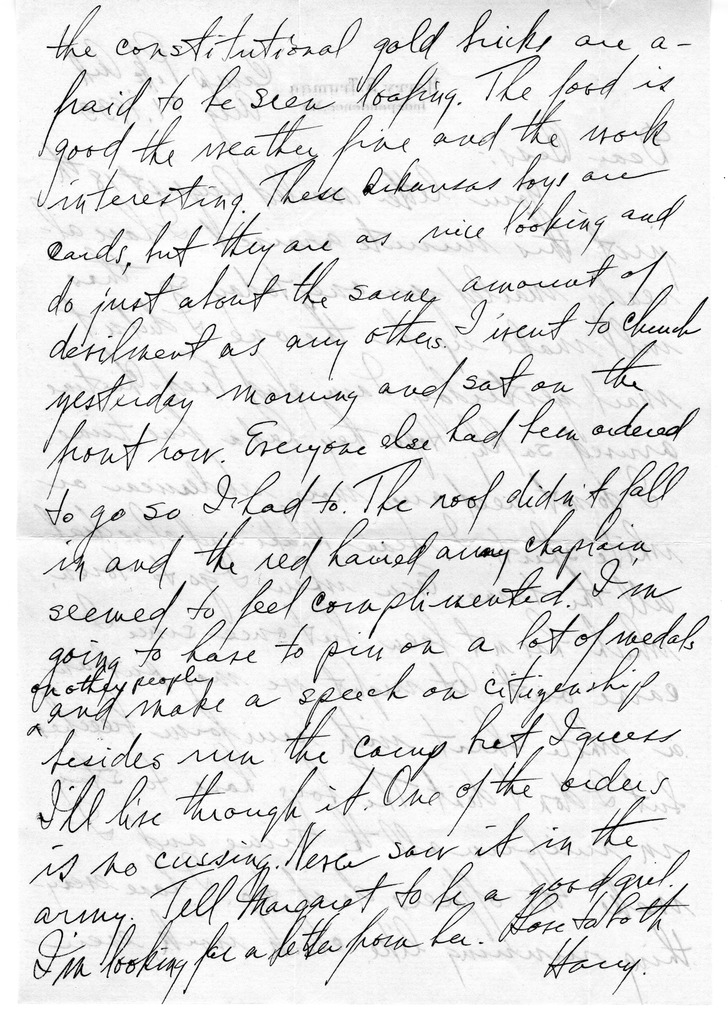 the constitutional gold bricks are a-
fraid to be seen loafing. The food is
good the weather fine and the work
interesting. These Arkansas boys are
cards, but they are as nice looking and
do just about the same amount of
devilment as any others. I went to church
yesterday morning and sat on the
front row. Everyone else had been ordered
to go so I had to. The roof didn't fall
in and the red haired army chaplain
seemed to feel complimented. I'm
going to have to pin on a lot of medals
on other people
and make a speech on citizenship
besides run the camp but I guess
I'll live through it. One of the orders
is no cussing. Never saw it in the
army. Tell Margaret to be a good girl.
I'm looking for a letter from her. Love to both
Harry.